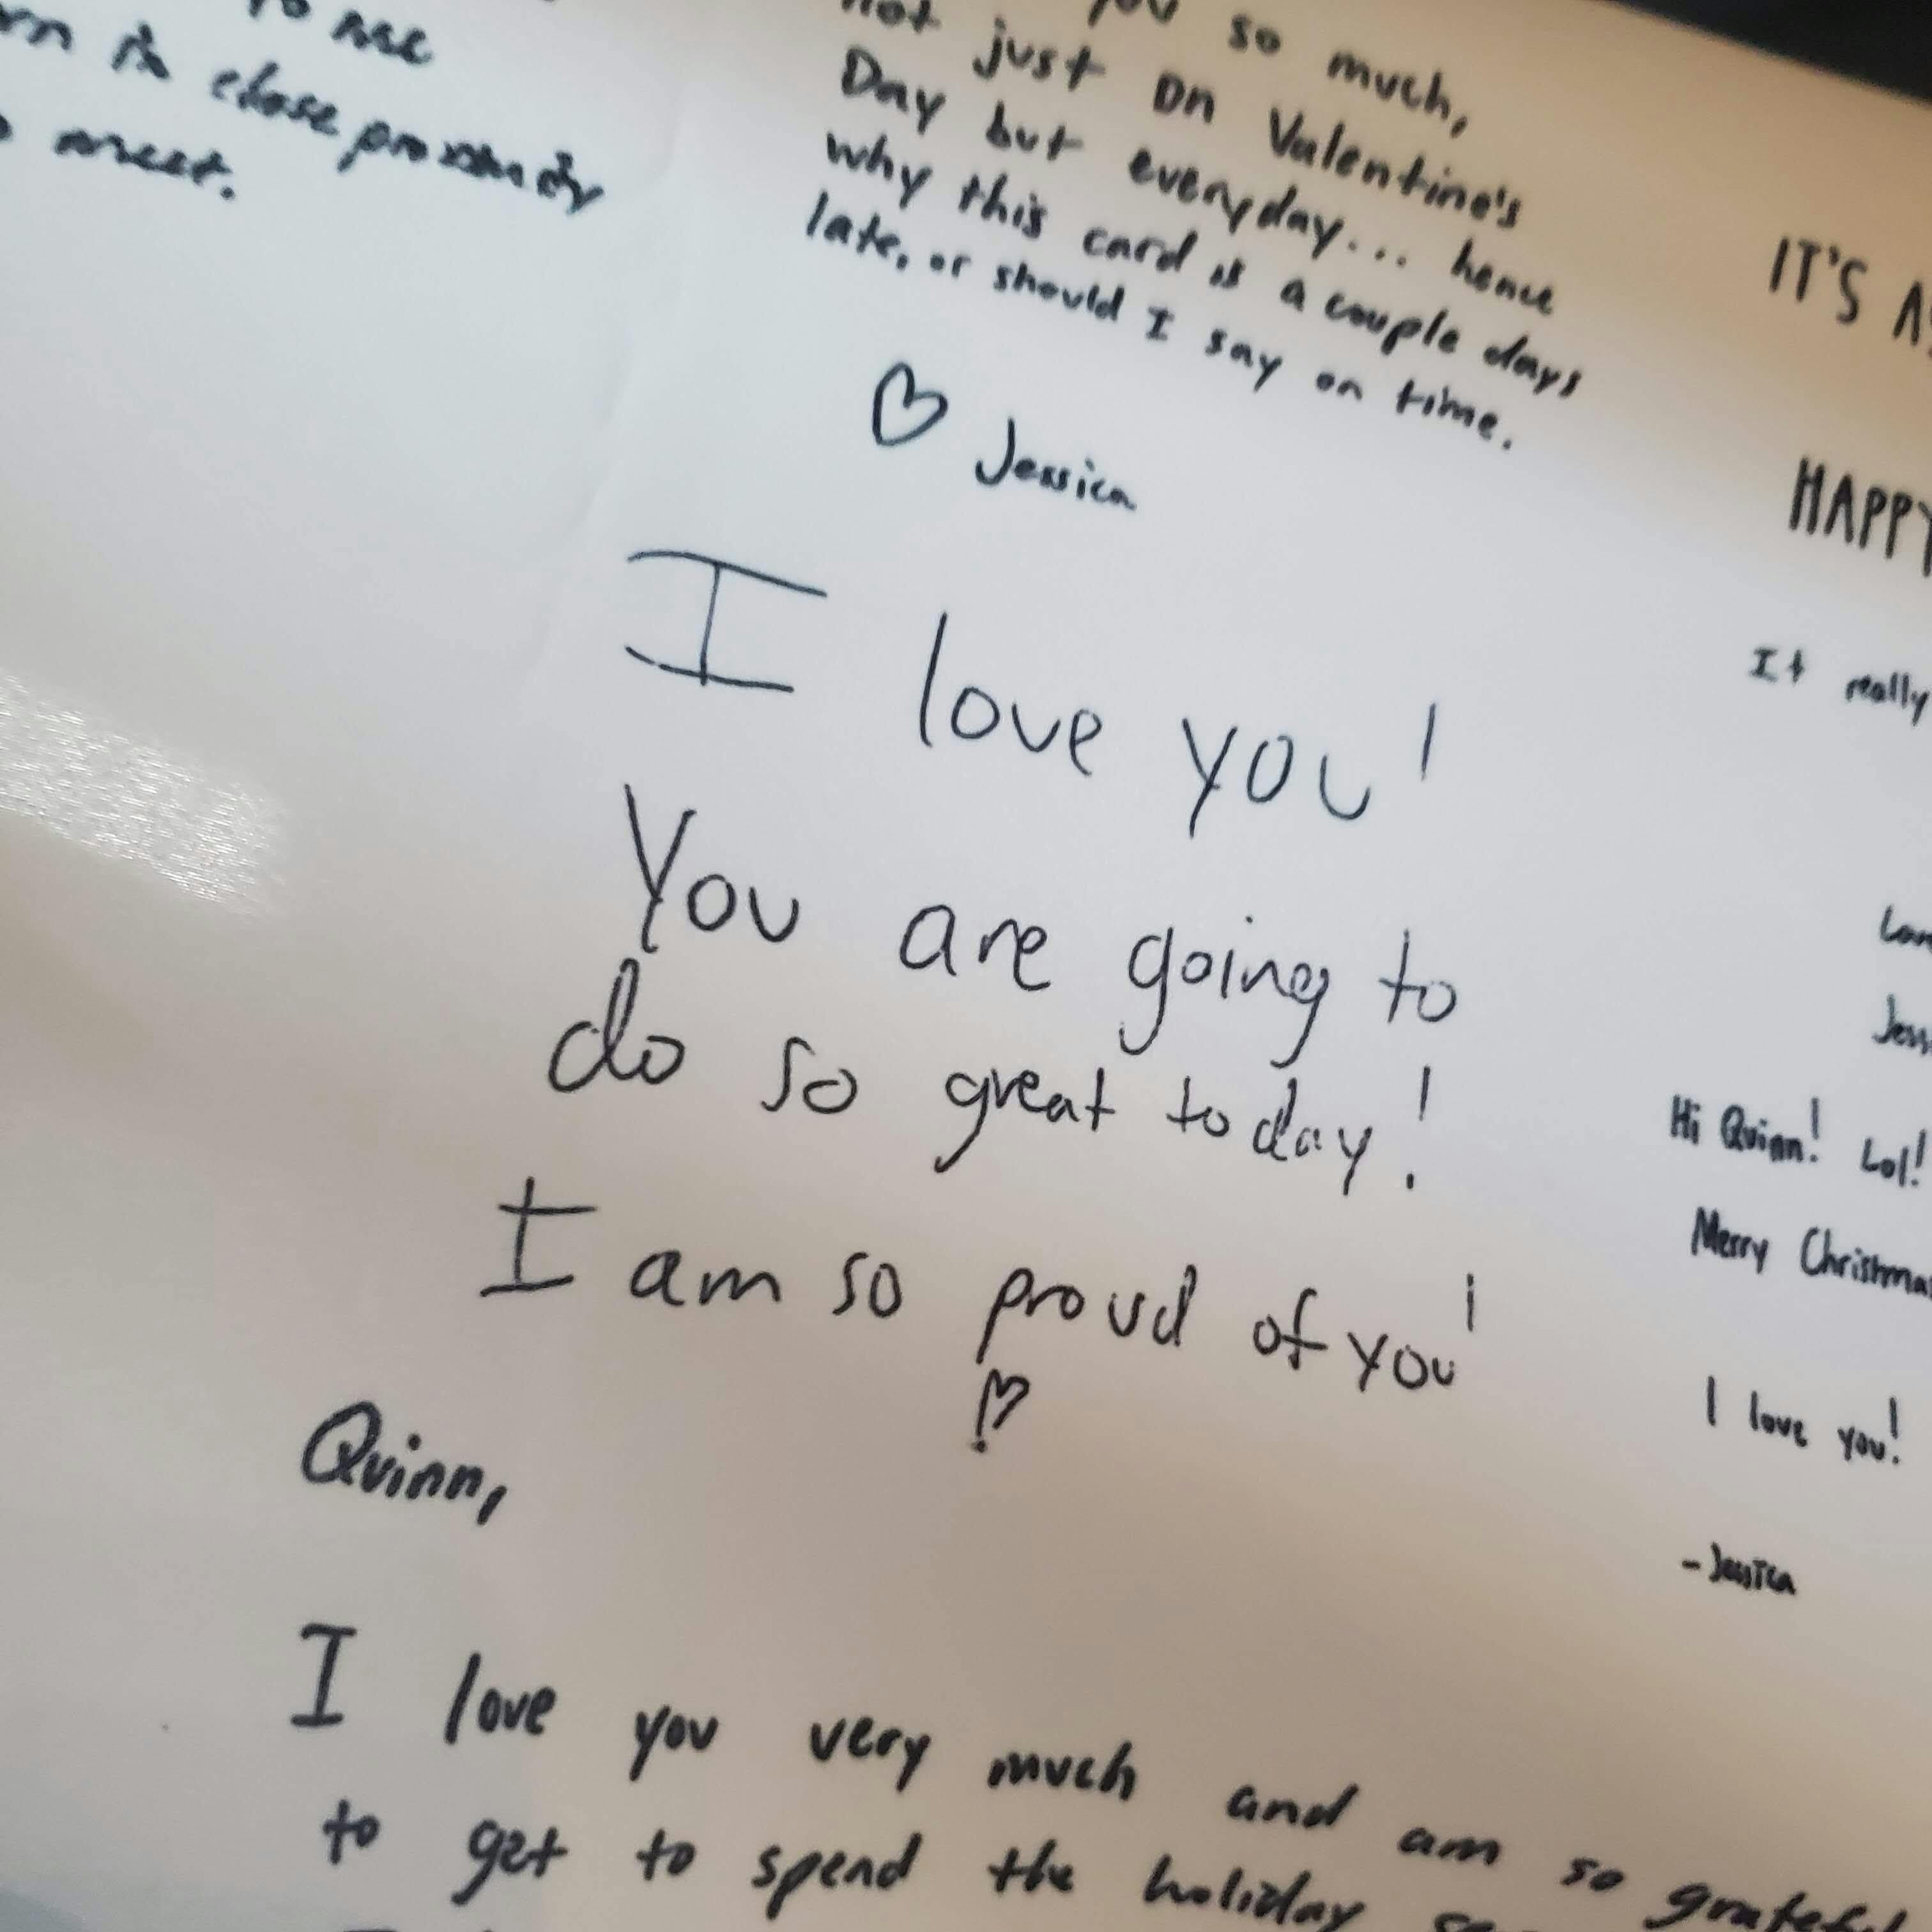 close proximity
meet.
so much,
not just on Valentine's
Day but everyday... hence
why this card is a couple days
late, or should I say on time.
♡ Jessica
I love you!
You are going to
do so great today!
I am so proud of you!
♡
Quinn,
I love you very much and am so
to get to spend the holiday
IT'S
HAPPY
It really
Hi Quinn! Lol!
Merry
I love you!
-Jessica